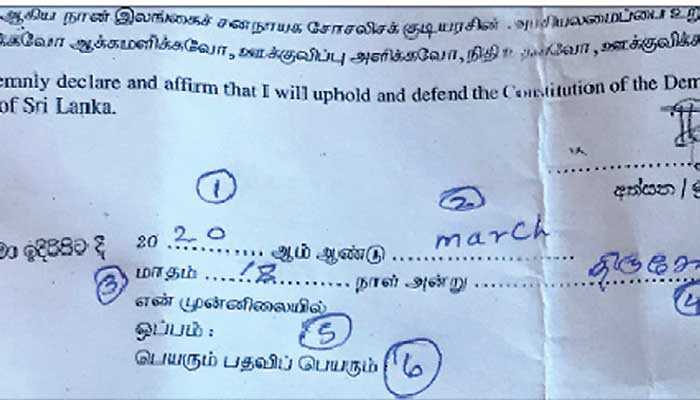 ஆகிய நான் இலங்கைச் சனநாயக சோசலிசக் குடியரசின் அரசியலமைப்பை உறு
க்கவோ ஆக்கமளிக்கவோ, ஊக்குவிப்பு அளிக்கவோ, நிதி ஊக்குவிக்க
emnly declare and affirm that I will uphold and defend the Constitution of the Dem
of Sri Lanka.
අත්සන /
1 2
මා ඉදිරිපිට දී 20 20 ஆம் ஆண்டு march
3 மாதம் 18 நாள் அன்று 4
என் முன்னிலையில்
ஒப்பம் : 5
பெயரும் பதவிப் பெயரும் 6